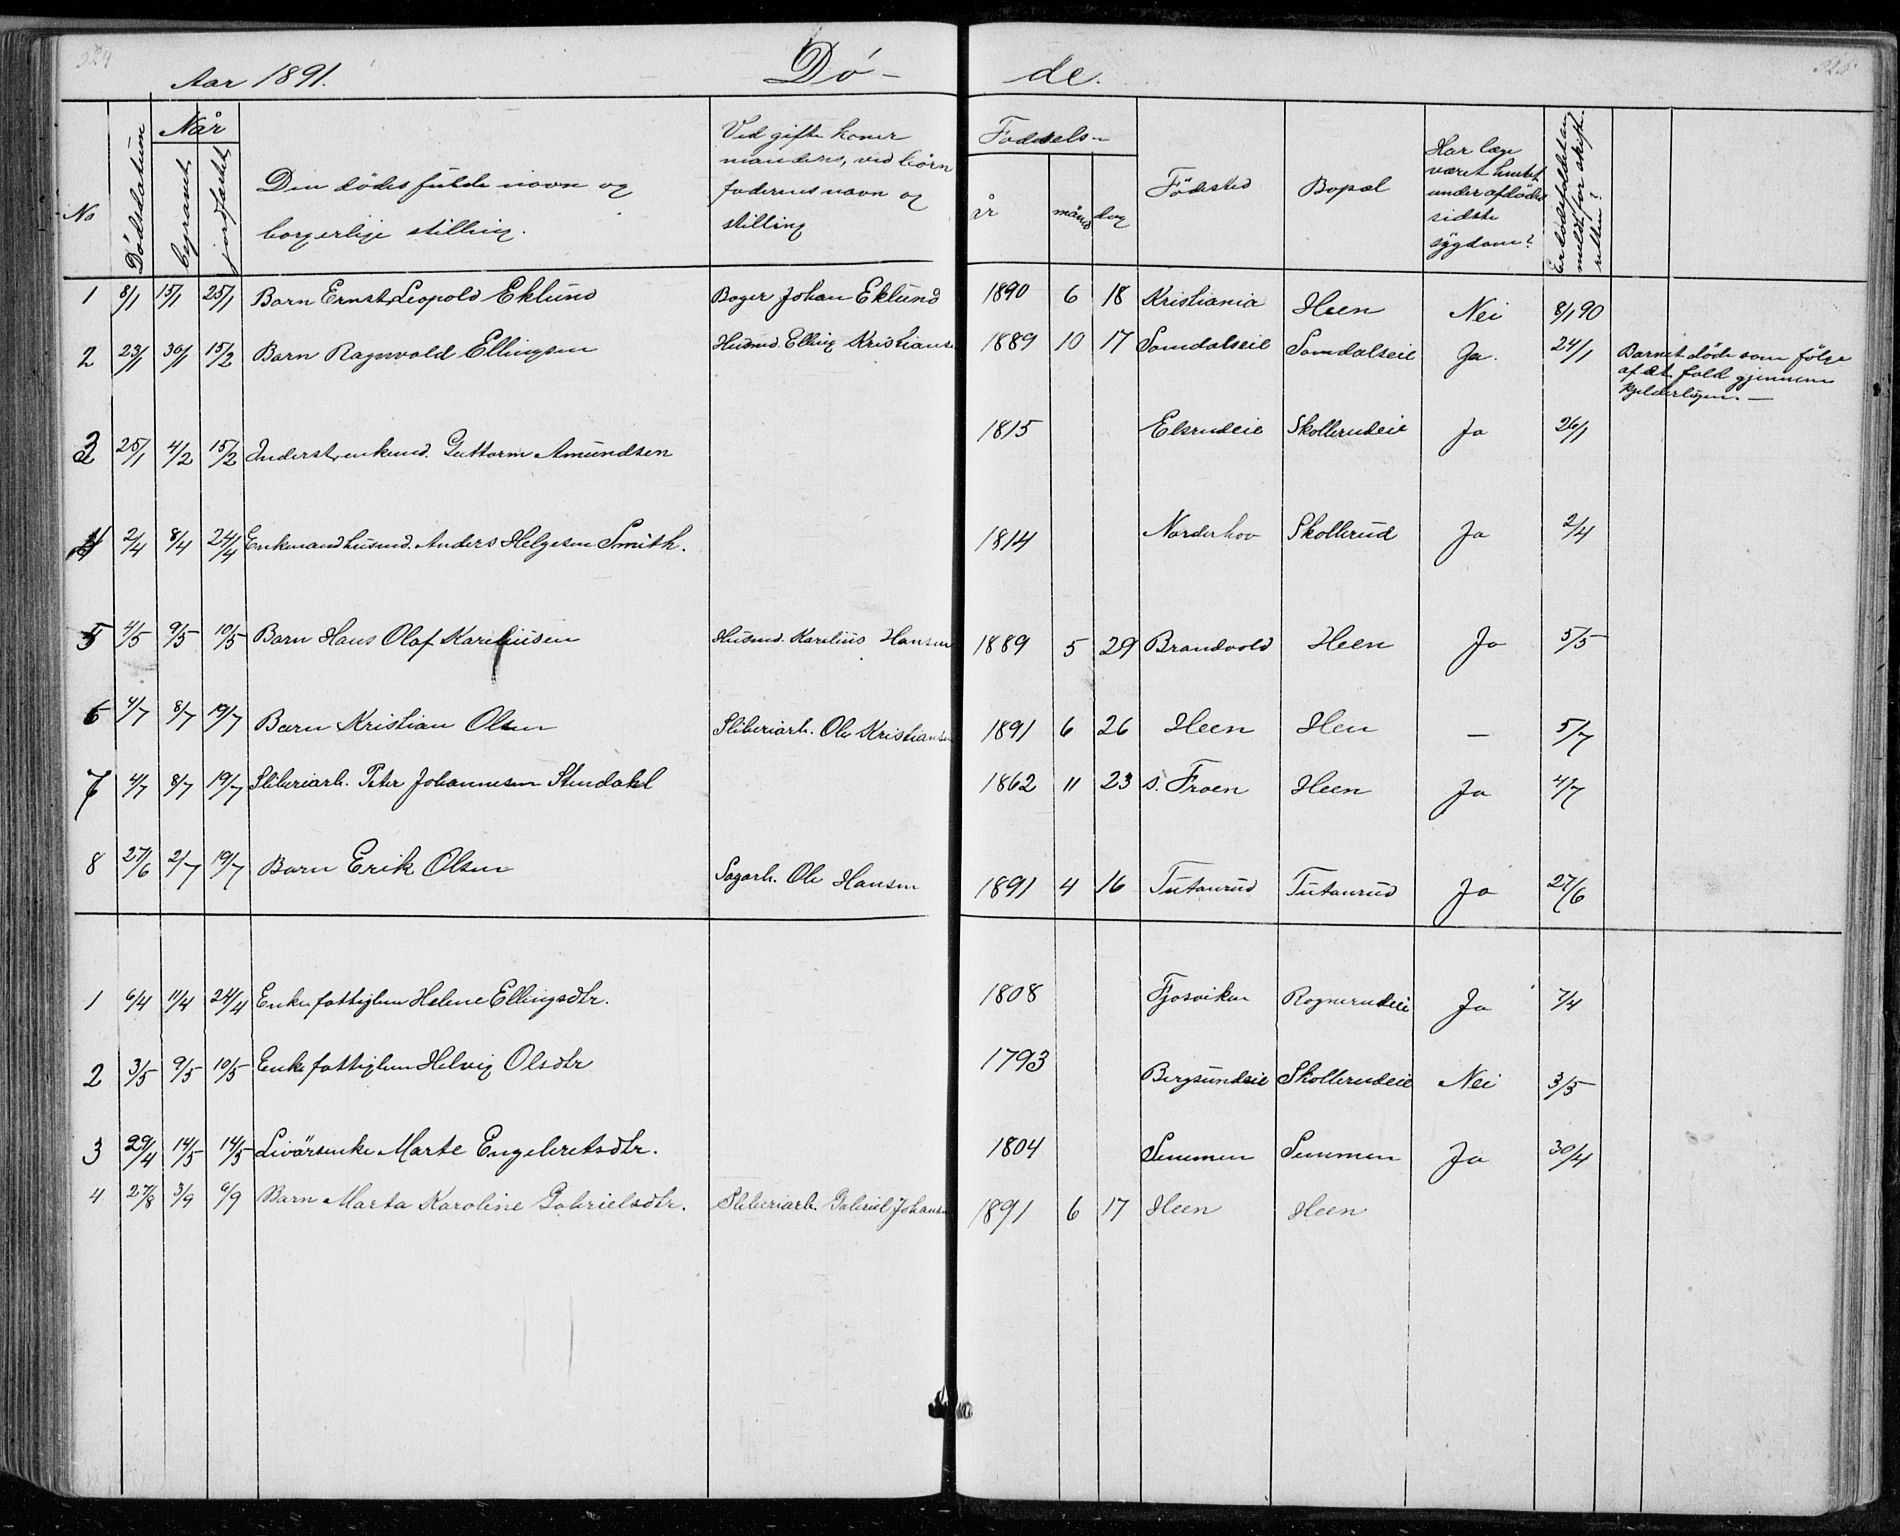 324
325
Aar 1891.
Dö-
de.
No
Dødsdatum
Når
begravet
jordfæstet
Den dødes fulde navn og
borgerlige stilling.
Ved gifte koner
mandens, ved börn
faderens navn og
stilling
Fødsels-
år
måned
dag
Födested
Bopæl
Har læge
været brugt
under afdødes
sidste
sygdom?
Er dödsfaldet an
meldt for skifte
retten?
1 8/1 15/1 25/1 Barn Ernst Leopold Eklund Bager Johan Eklund 1890 6 18 Kristiania Heen Nei 8/1 90
2 23/1 30/1 15/2 Barn Ragnvald Ellingsen Husmd. Elling Kristiansen 1889 10 17 Somdalseie Somdalseie Ja. 24/1 Barnet døde som følge
af et fald gjennem
kjelderlugen. —
3 25/1 4/2 15/2 Inderst, enkemd. Guttorm Amundsen 1815 Elsrudeie Skollerudeie Ja 26/1
4 2/4 8/4 24/4 Enkemand husmd. Anders Helgesen Smith. 1814 Norderhov Skollerud Ja 2/4
5 4/5 9/5 10/5 Barn Hans Olaf Kareliusen Husmd. Karelius Hansen 1889 5 29 Brandvold Heen Ja 5/5
6 4/7 8/7 19/7 Barn Kristian Olsen Sliberiarb. Ole Kristiansen 1891 6 26 Heen Hen — 5/7
7 4/7 8/7 19/7 Sliberiarb. Peter Johannesen Stendahl 1862 11 23 S. Froen Heen Ja 4/7
8 27/6 2/7 19/7 Barn Erik Olsen Sagarb. Ole Hansen 1891 4 16 Tutanrud Tutanrud Ja 27/6
1 6/4 11/4 24/4 Enke, fattiglem Helene Ellingsdtr. 1808 Fjosviken Rognerudeie Ja 7/4
2 3/5 9/5 10/5 Enke fattiglem Helvig Olsdtr 1793 Bergsundseie Skollerudeie Nei 3/5
3 29/4 14/5 14/5 Livörsenke Marte Engebretsdtr. 1804 Semmen Semmen Ja 30/4
4 27/8 3/9 6/9 Barn Marta Karoline Gabrielsdtr. Sliberiarb. Gabriel Johansen 1891 6 17 Heen Heen